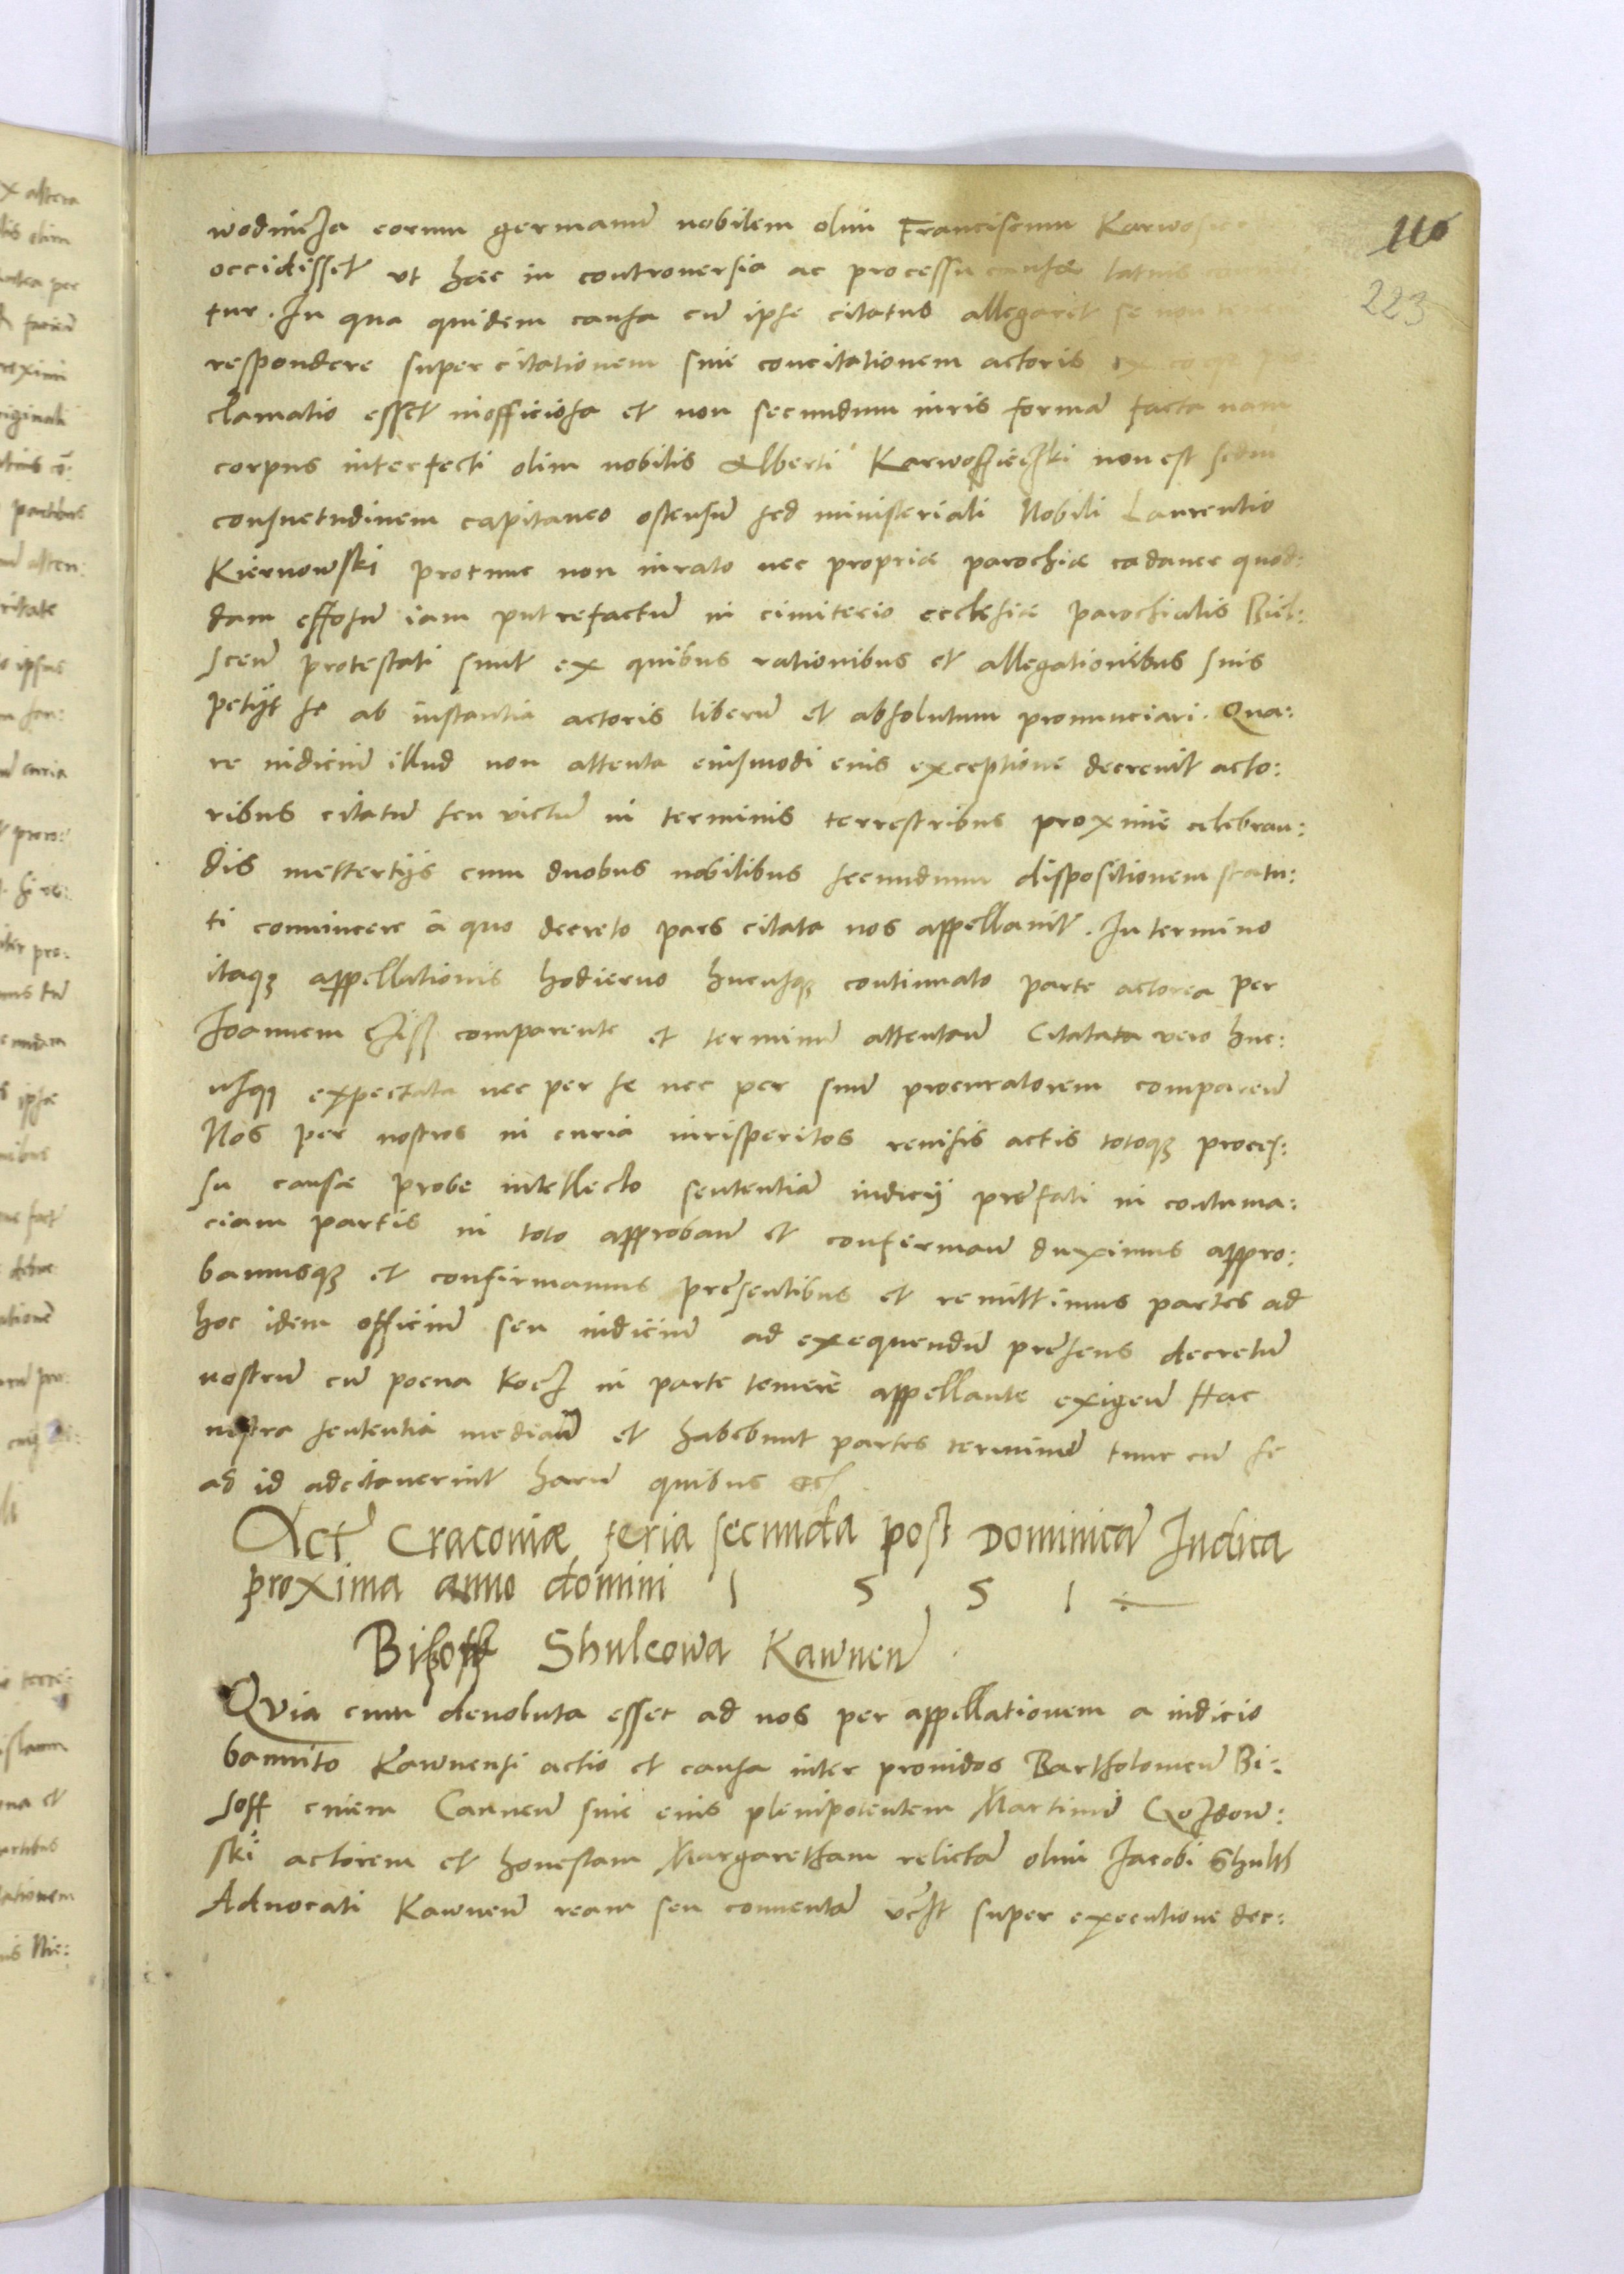 110
223
wodnicza eorum germanum nobilem olim Franciscum
occidisset ut haec in controversia ac processu causae latius
tur. In qua quidem causa cum ipse citatus allegarit se non
respondere super citationem sive concitationem actoris ex eo
clamatio esset inofficiosa et non secundum iuris formam facta nam
corpus interfecti olim nobilis Alberti Karwosieczki non est secundum
consuetudinem capitaneo ostensum sed ministeriali Nobili Laurentio
Kiernowski protunc non iurato nec propriae parochiae cadaver quod:
dam effosum iam putrefactum in cimiterio ecclesiae parochialis Biel:
scen protestati sunt ex quibus rationibus et allegationibus suis
petijt se ab instantia actoris liberum et absolutum pronunciari. Qua:
re iudicium illud non attenta eiusmodi eius exceptione decrevit acto:
ribus citatum seu victum in terminis terrestribus proxime celebran:
dis mettertijs cum duobus nobilibus secundum dispositionem statu:
ti convincere a quo decreto pars citata nos appellavit. In termino
itaque appellationis hodierno hucusque continuato parte actorea per
Joannem comparente et terminum attentan Citatata vero huc:
usque expectata nec per se nec per suum procuratorem comparen
Nos per nostros in curia iurisperitos revisis actis totoque proces:
su causae probe intellecto sententiam iudicij prefati in contuma:
ciam partis in toto approban et conferman duximus appro:
bamusque et confirmamus presentibus et remittimus partes ad
hoc idem officium seu iudicium ad exequendum presens decretum
nostrum cum poena Kocz in parte temere appellante exigen Hac
nostra sententia median et habebunt partes terminum tunc cum se
ad id adcitaverint harum quibus etc
Act Cracoviae feria secunda post Dominicam Iudica
proxima anno domini 1 5 5 1
Bisoff Shulcowa Kawnen
Quia cum devoluta esset ad nos per appellationem a iudicio
bannito Kawnensi actio et causa inter providos Bartholomeum Bi:
soff civem Caunen sive eius plenipotentem Martinum Gozdow:
ski actorem et honestam Margaretham relictam olim Jacobi Shulth
Advocati Kawnen ream seu conventam super executione dec: